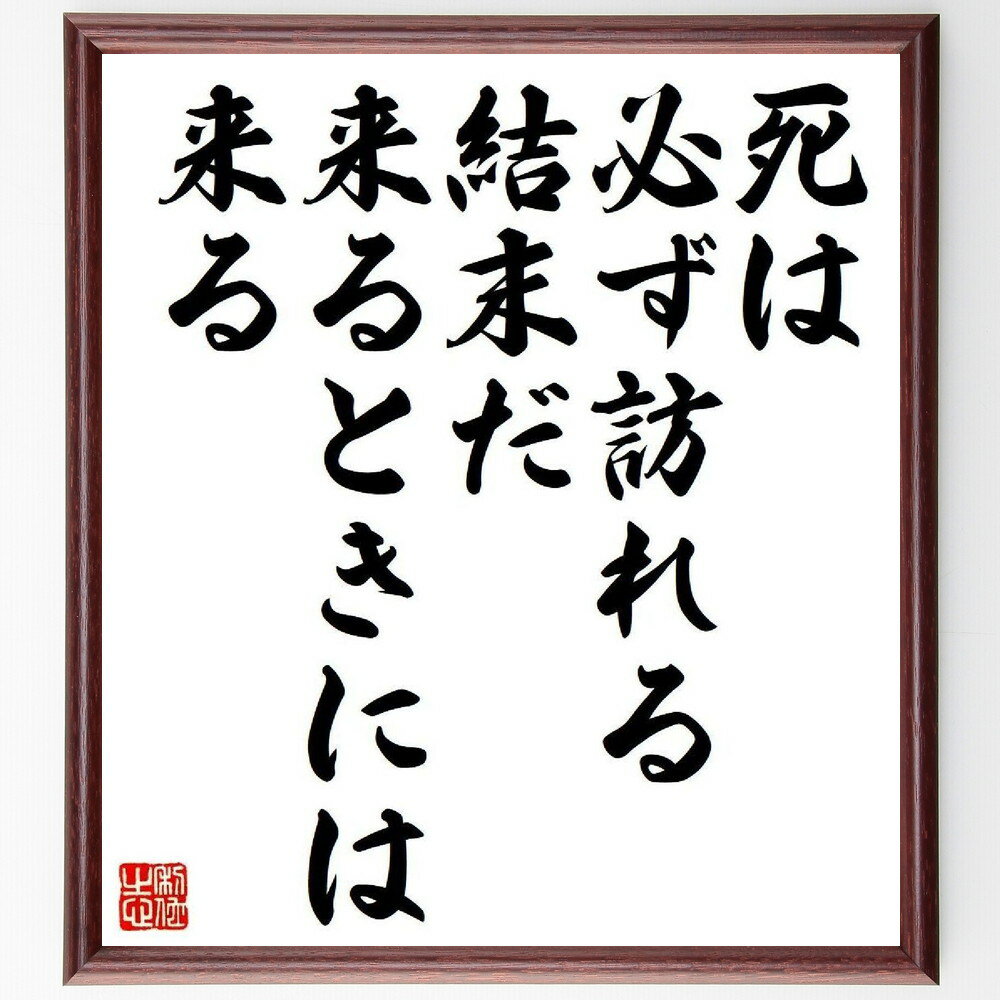 死は
必ず訪れる
結末だ
来るときには
来る